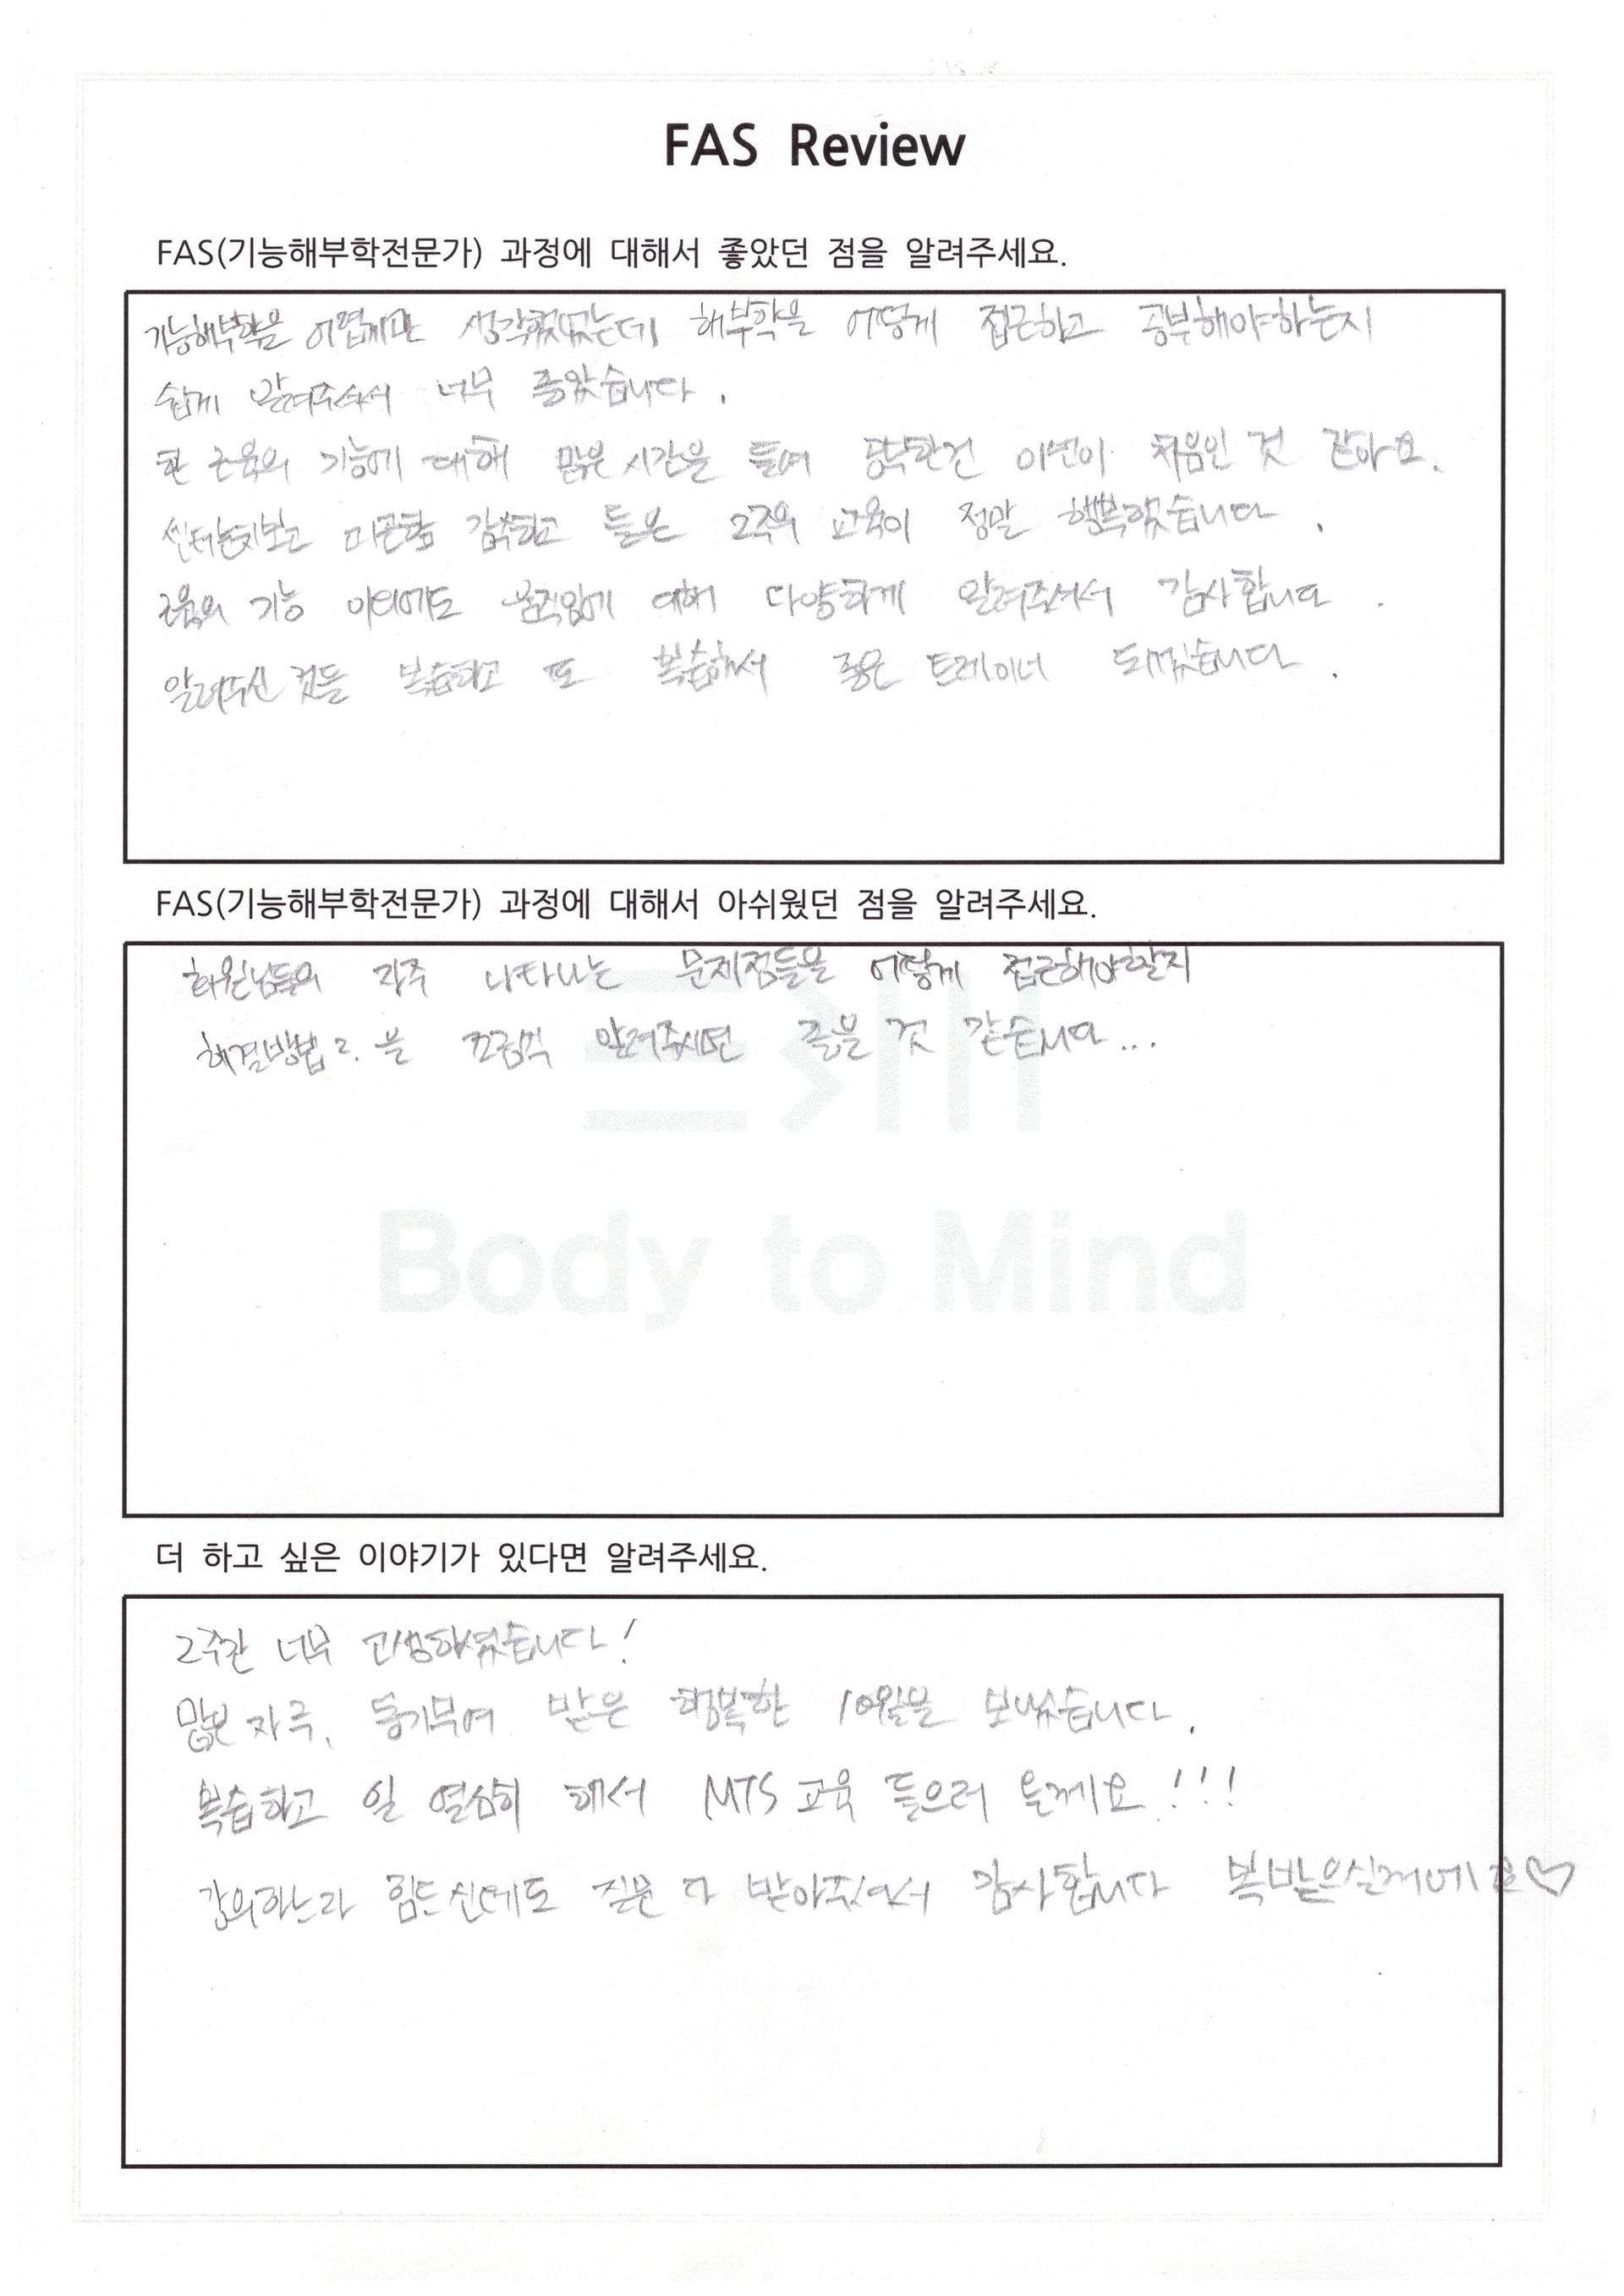 FAS Review
FAS(기능해부학전문가) 과정에 대해서 좋았던 점을 알려주세요.
기능해부학을 어렵게만 생각했었는데, 해부학을 어떻게 접근하고 공부해야하는지
쉽게 알려주셔서 너무 좋았습니다.
한 근육의 기능에 대해 많은 시간을 들여 공부한건 이번이 처음인 것 같아요.
센터눈치보고 피곤함 감수하고 들은 2주의 교육이 정말 행복했습니다.
근육의 기능 이외에도 움직임에 대해 다양하게 알려주셔서 감사합니다.
알려주신 것들 복습하고 또 복습해서 좋은 트레이너 되겠습니다.
FAS(기능해부학전문가) 과정에 대해서 아쉬웠던 점을 알려주세요.
회원님들의 자주 나타나는 문제점들을 어떻게 접근해야할지
해결방법 을 조금씩 알려주시면 좋을 것 같습니다...
Body to Mind
더 하고 싶은 이야기가 있다면 알려주세요.
2주간 너무 고생하셨습니다!
많은 자극, 동기부여 받은 행복한 10월을 보냈습니다.
복습하고 일 열심히 해서 MTS 교육 들으러 올게요!!!
강의하느라 힘드신데도 질문 다 받아주셔서 감사합니다 복받으실꺼에요♡